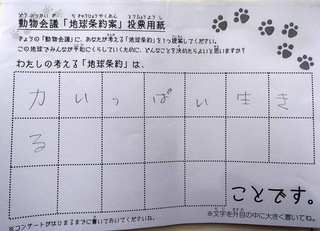 動物会議「地球条約案」投票用紙
きょうの「動物会議」に、あなたが考える「地球条約」を1つ提案してください。
この地球でみんなが平和にくらしていくために、どんなことを決めたらよいと思いますか？
わたしの考える「地球条約」は、
力いっぱい生き
る
ことです。
※文字を升目の中に大きく書いてね。
※コンサートがはじまるまでに書いておいてくださいね。